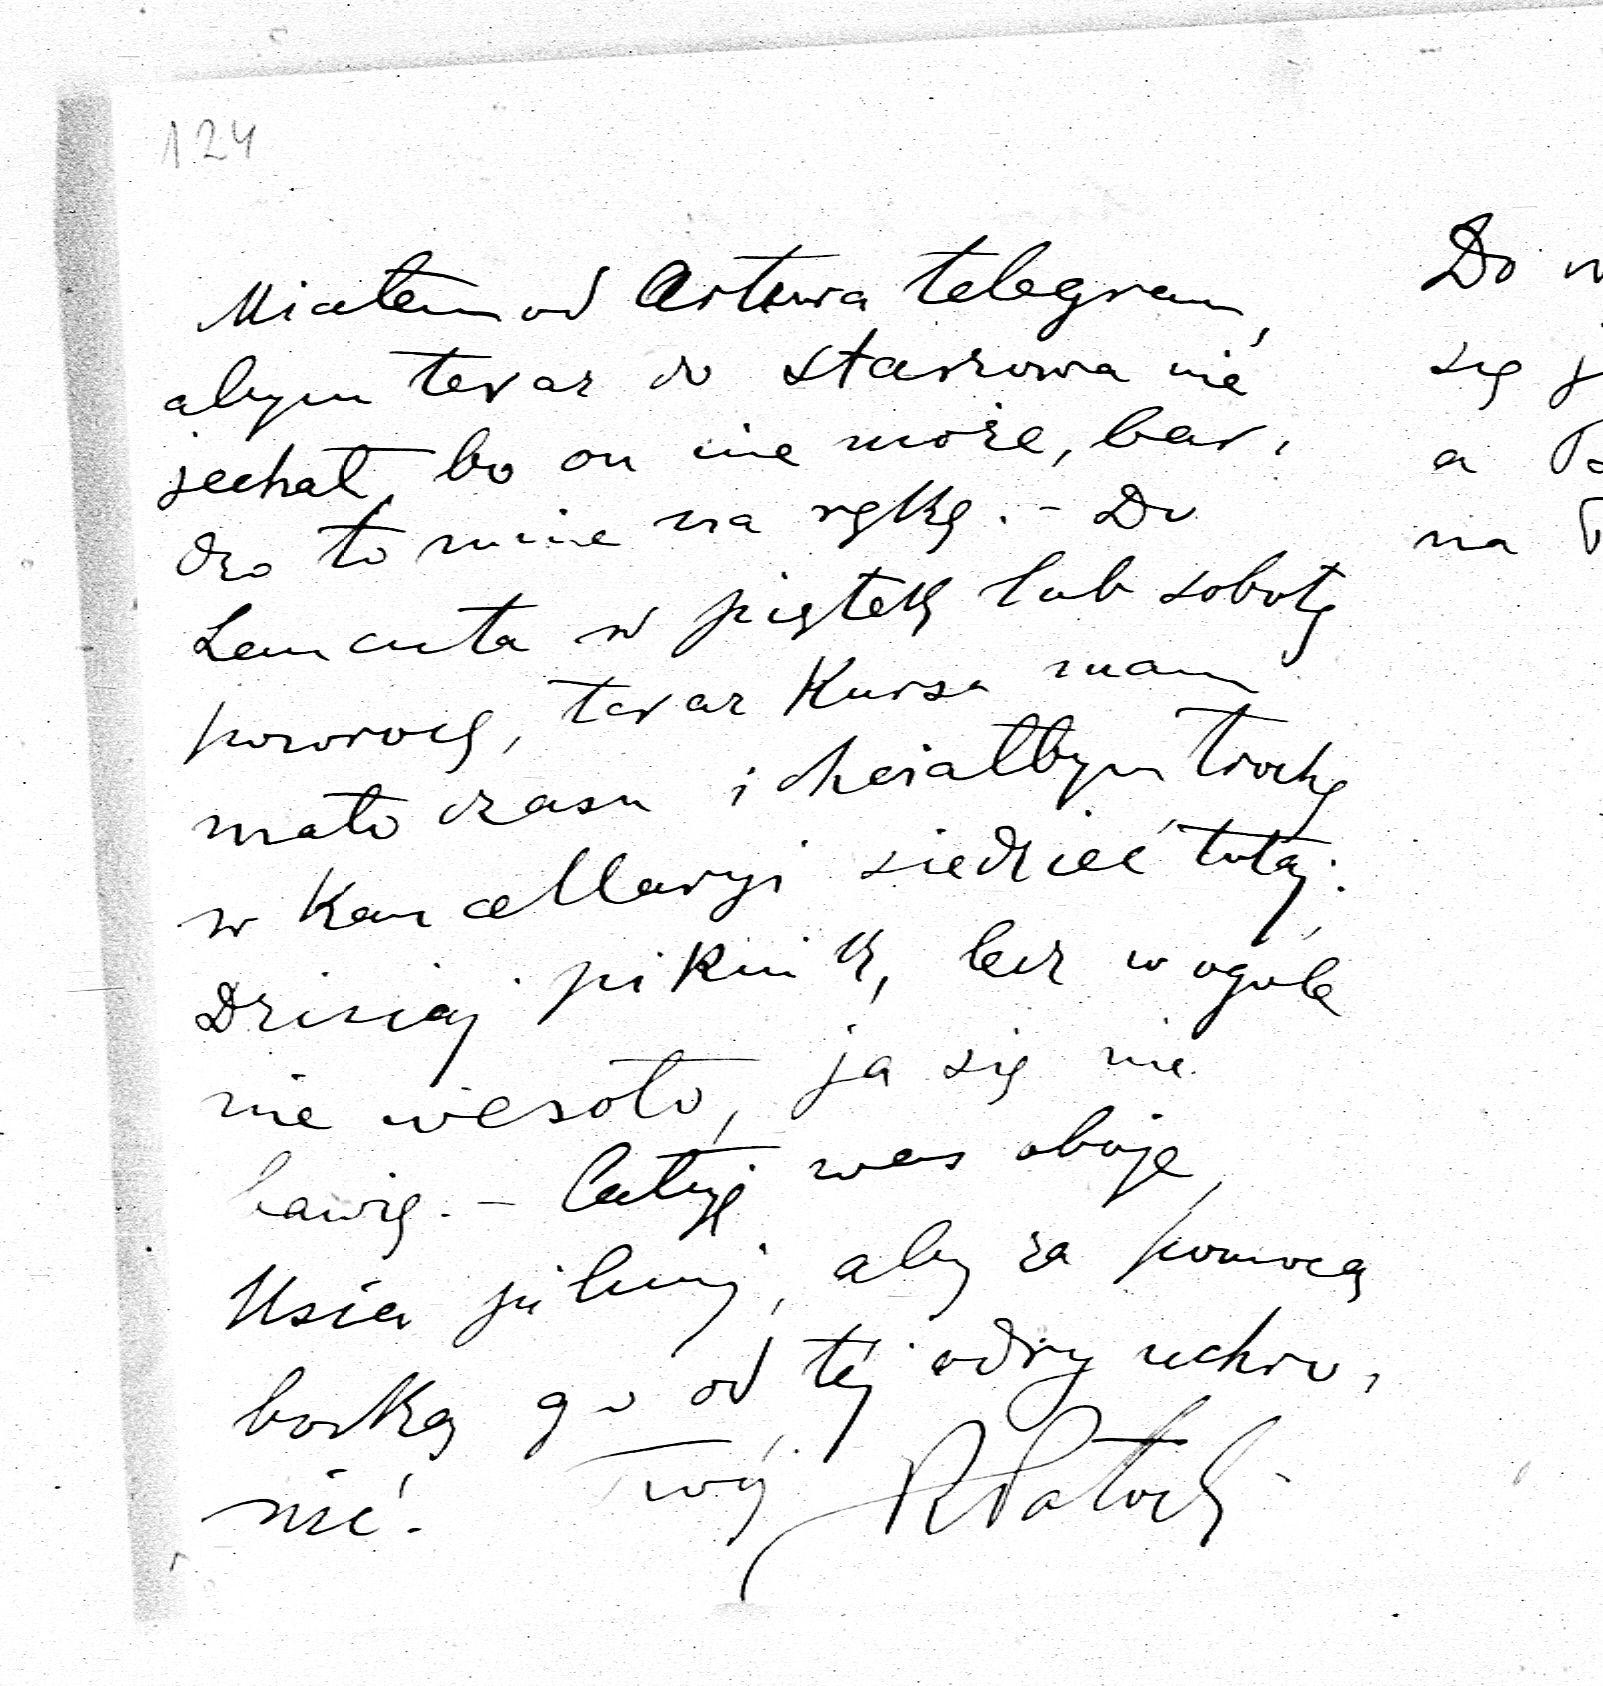 124
Miałem od Artura telegram,
abym teraz do Starzowa nie
jechał, bo on nie może, bar-
dzo to mnie na rękę. - Do
Łancuta w piątek lub sobotę
powrocę, teraz Kursa mam
mało czasu i chciałbym trochę
w Kancellaryi siedzieć tutaj.
Dzisiaj piknik, lecz w ogole
nie wesoło, ja się nie
bawię. - Całuję was oboje,
pilnuj, aby za pomocą
boską go od tej odry uchro-
nić. Twój RPotocki
Do
się
a
na